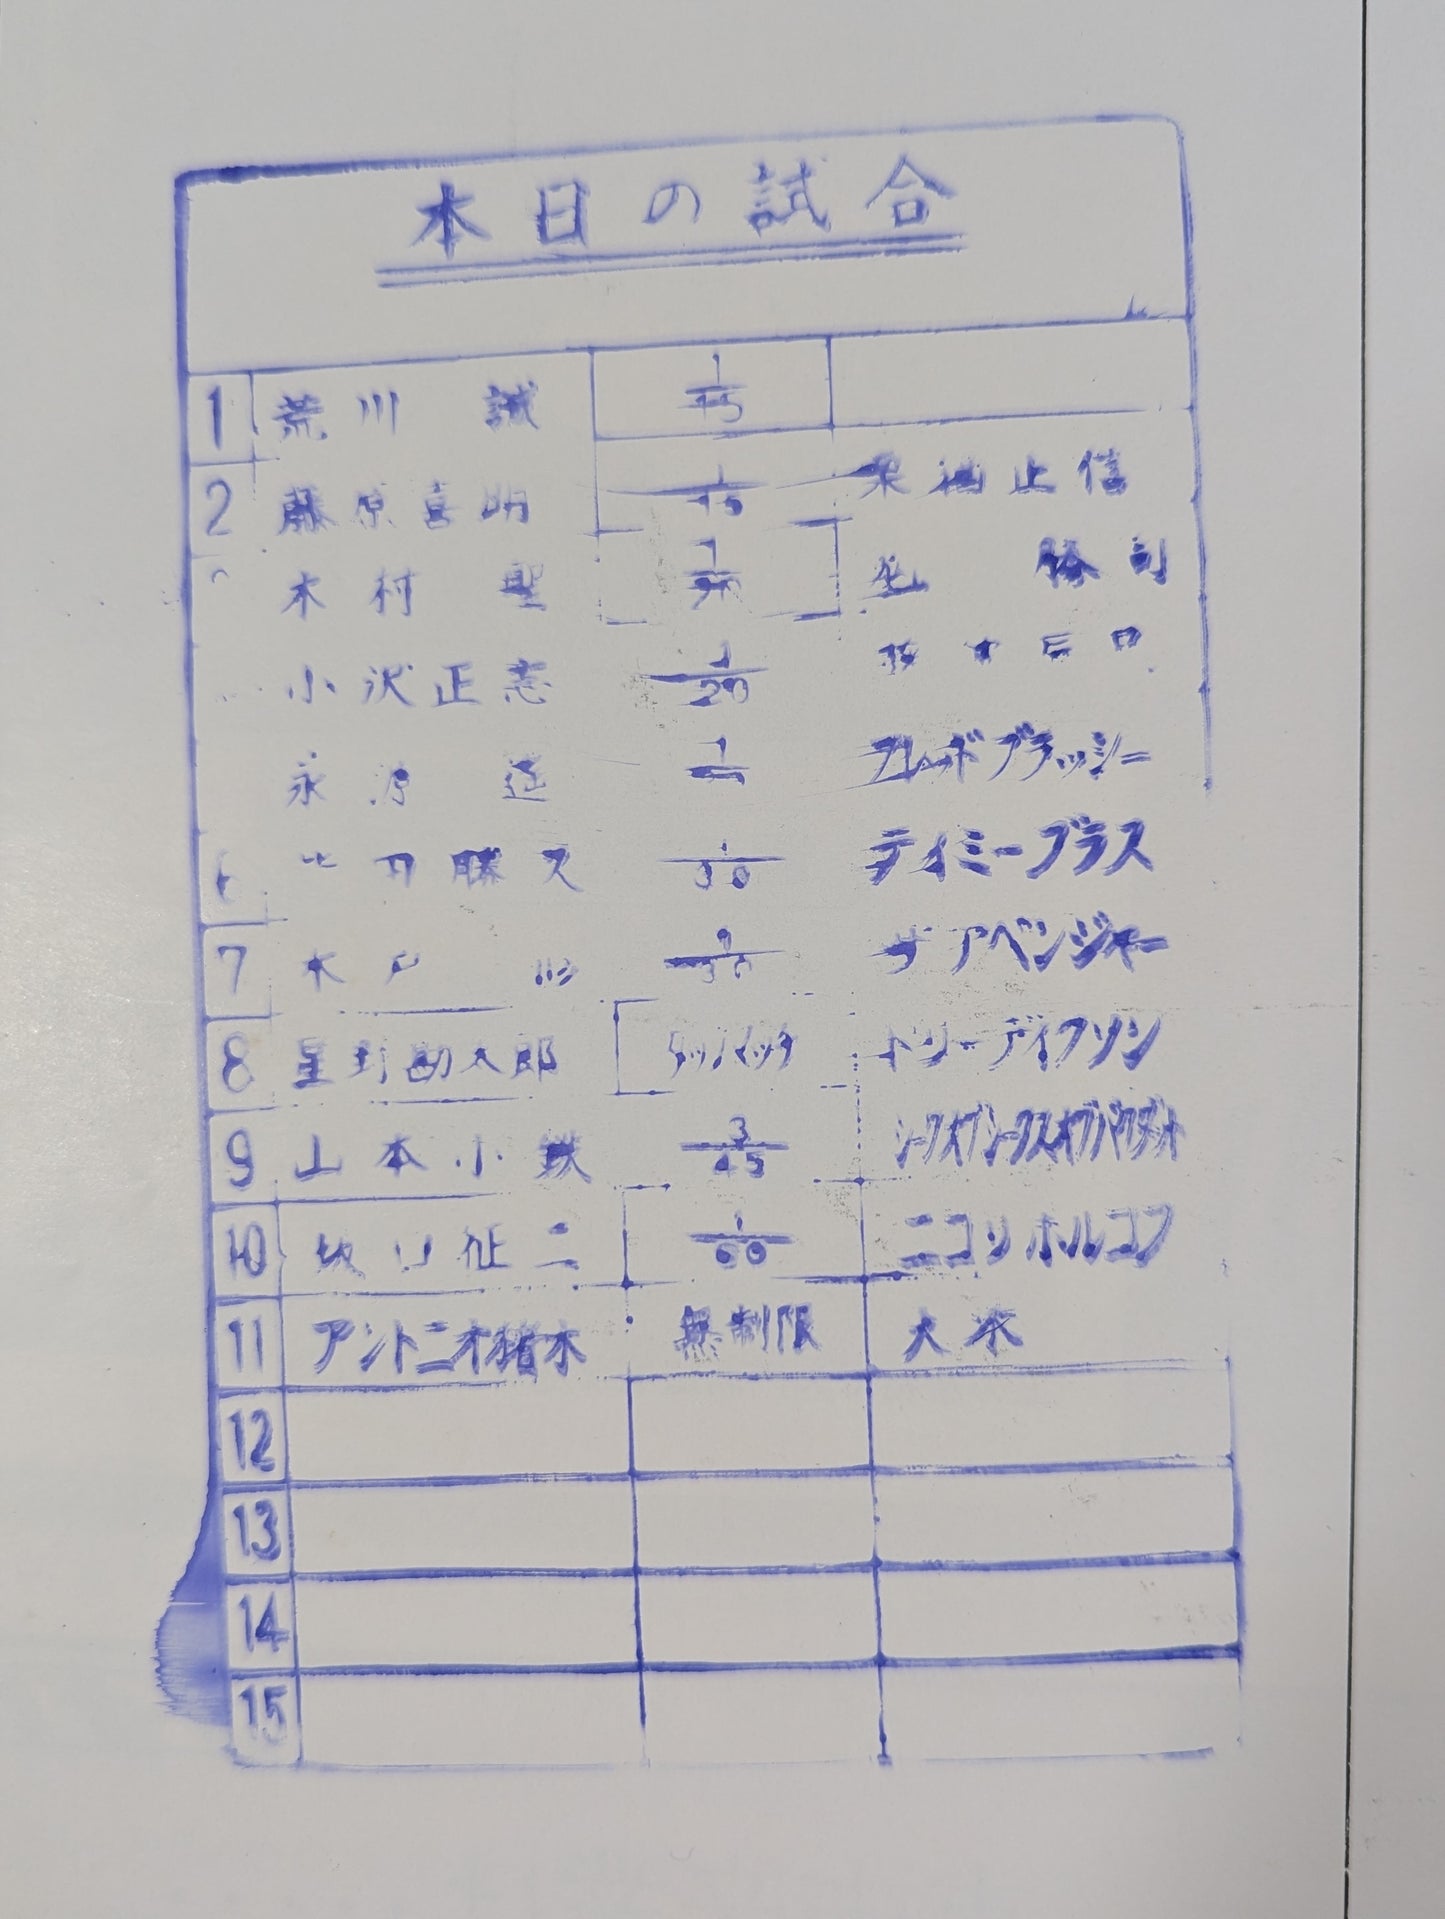 本日の試合
1 荒川 誠 1/45
2 藤原喜明 1/15 栗栖正信
木村 聖 1 勝
小沢正志 1/20
永源 遥 1 フレッドブラッシー
6 田勝久 1/30 ティミーブラス
7 木戸 ザアベンジャー
8 星野勘太郎 タッグマッチ トリーディクソン
9 山本小鉄 3/45 シークオブシークスオブバグダット
10 坂口征二 1/60 ニコリホルコフ
11 アントニオ猪木 無制限 大木
12
13
14
15